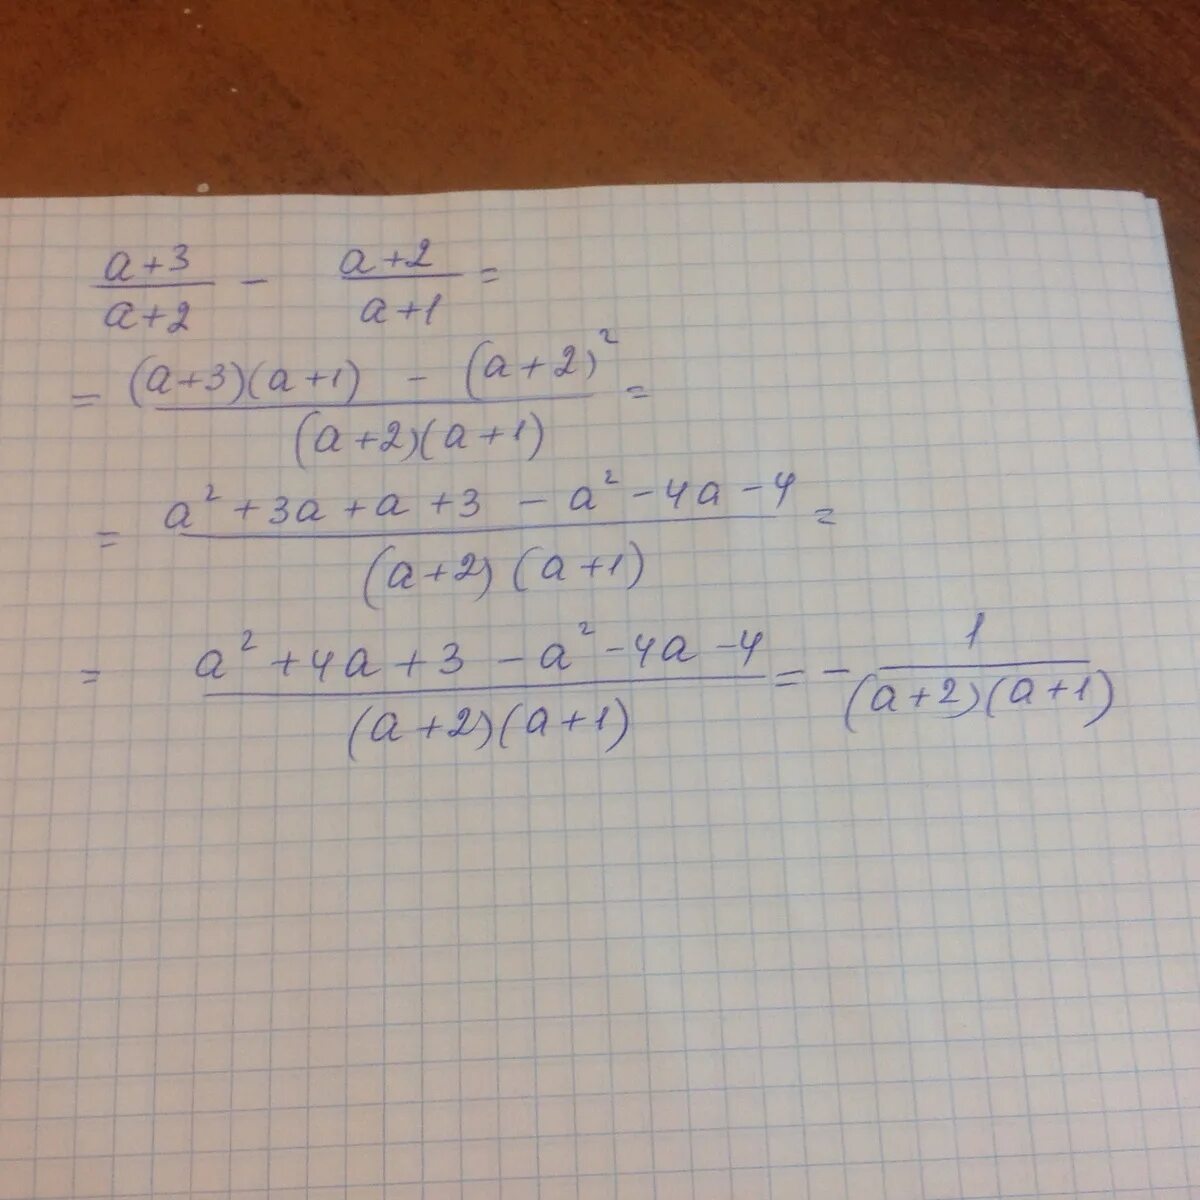 (a+3)/(a+2) - (a+2)/(a+1) =
= ((a+3)(a+1) - (a+2)²)/((a+2)(a+1)) =
= (a²+3a+a+3-a²-4a-4)/((a+2)(a+1)) =
= (a²+4a+3-a²-4a-4)/((a+2)(a+1)) = - 1/((a+2)(a+1))